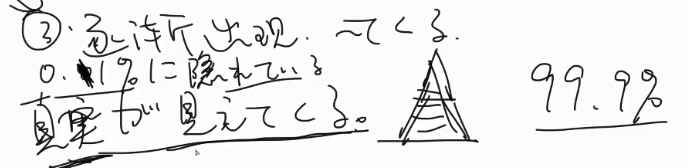 ③. 急に浮所出現. ってくる.
0.1%に隠れている
真実が見えてくる。
99.9%